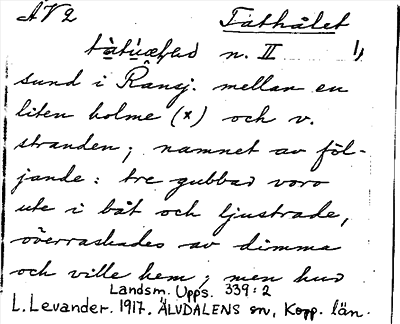 AV2
Tåthålet
n. II 1)
sund i Rånsj. mellan en
liten holme (x) och v.
stranden; namnet av föl-
jande: tre gubbar voro
ute i båt och ljustrade,
överraskades av dimma
och ville hem; men hur
Landsm. Upps. 339:2
L. Levander. 1917. ÄLVDALENS sn, Kopp. län.